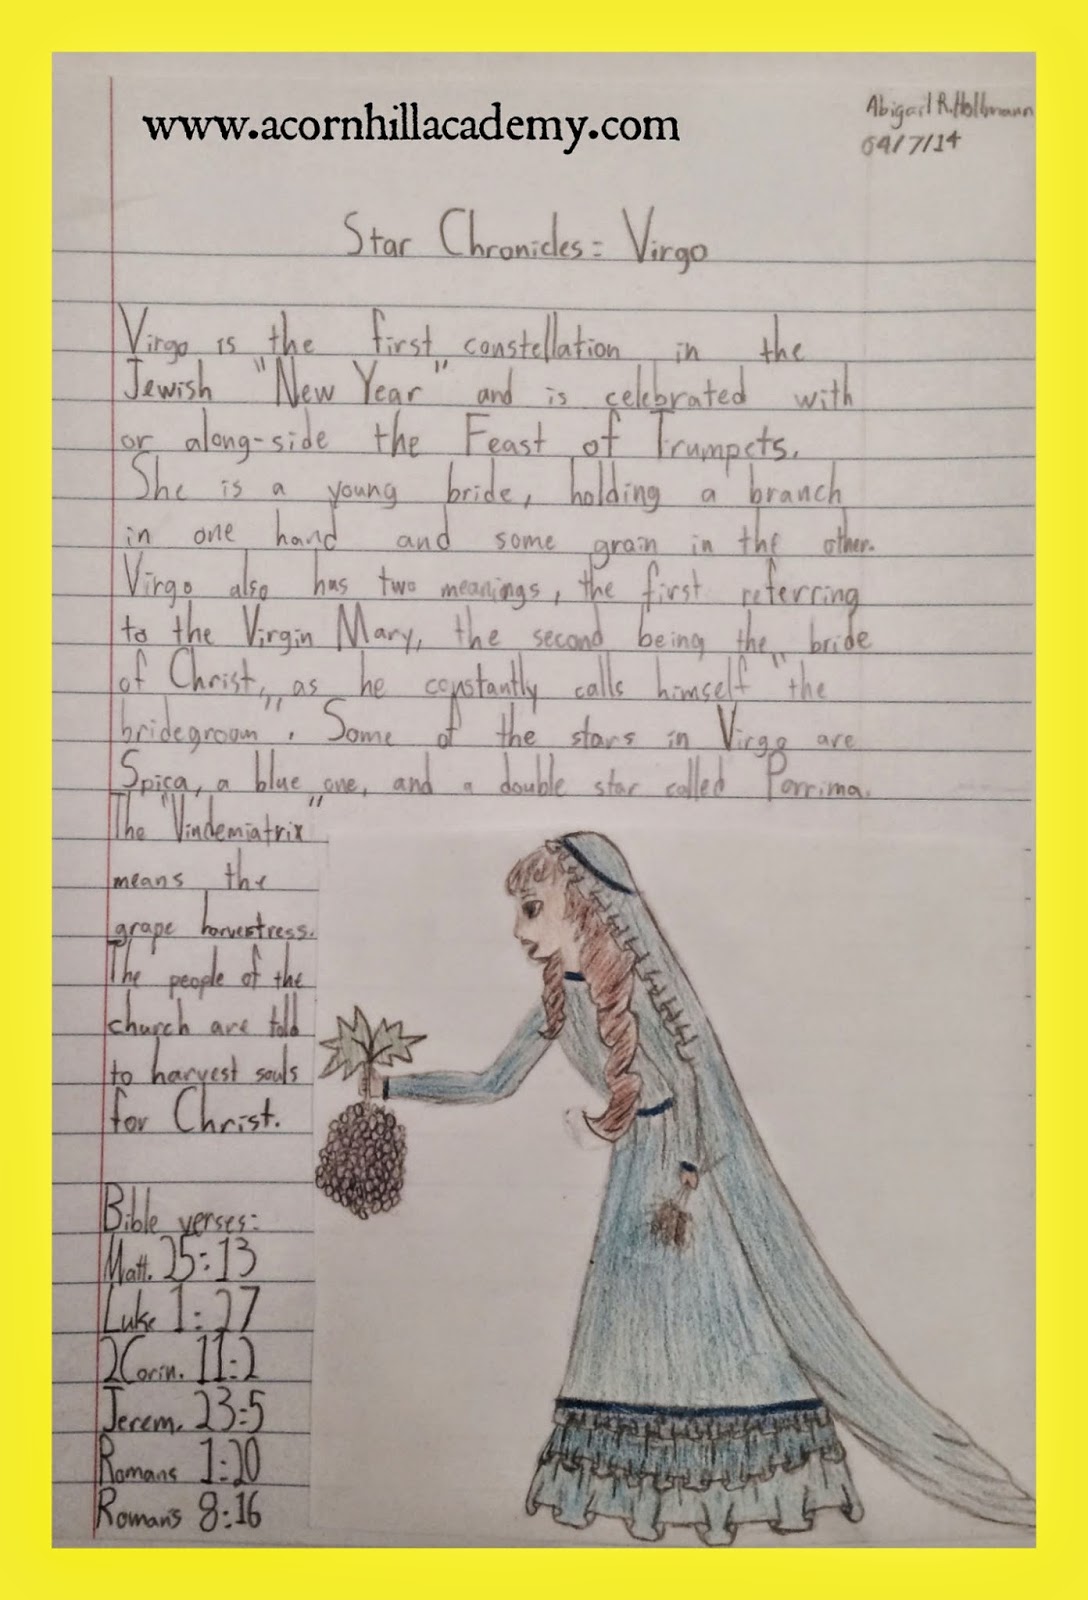 www.acornhillacademy.com
Abigail R. Hollmann
04/7/14
Star Chronicles: Virgo
Virgo is the first constellation in the
Jewish "New Year" and is celebrated with
or along-side the Feast of Trumpets.
She is a young bride, holding a branch
in one hand and some grain in the other.
Virgo also has two meanings, the first referring
to the Virgin Mary, the second being the "bride
of Christ," as he constantly calls himself "the
bridegroom". Some of the stars in Virgo are
Spica, a blue one, and a double star called Porrima.
The "Vindemiatrix"
means the
grape harvestress.
The people of the
church are told
to harvest souls
for Christ.
Bible verses:
Matt. 25:13
Luke 1:27
2Corin. 11:2
Jerem. 23:5
Romans 1:20
Romans 8:16